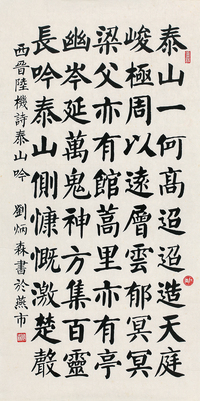 泰山一何高迢迢造天庭
峻極周以遠層雲郁冥冥
梁父亦有館蒿里亦有亭
幽岑延萬鬼神方集百靈
長吟泰山側慷慨激楚聲
西晉陸機詩泰山吟 劉炳森書於燕市